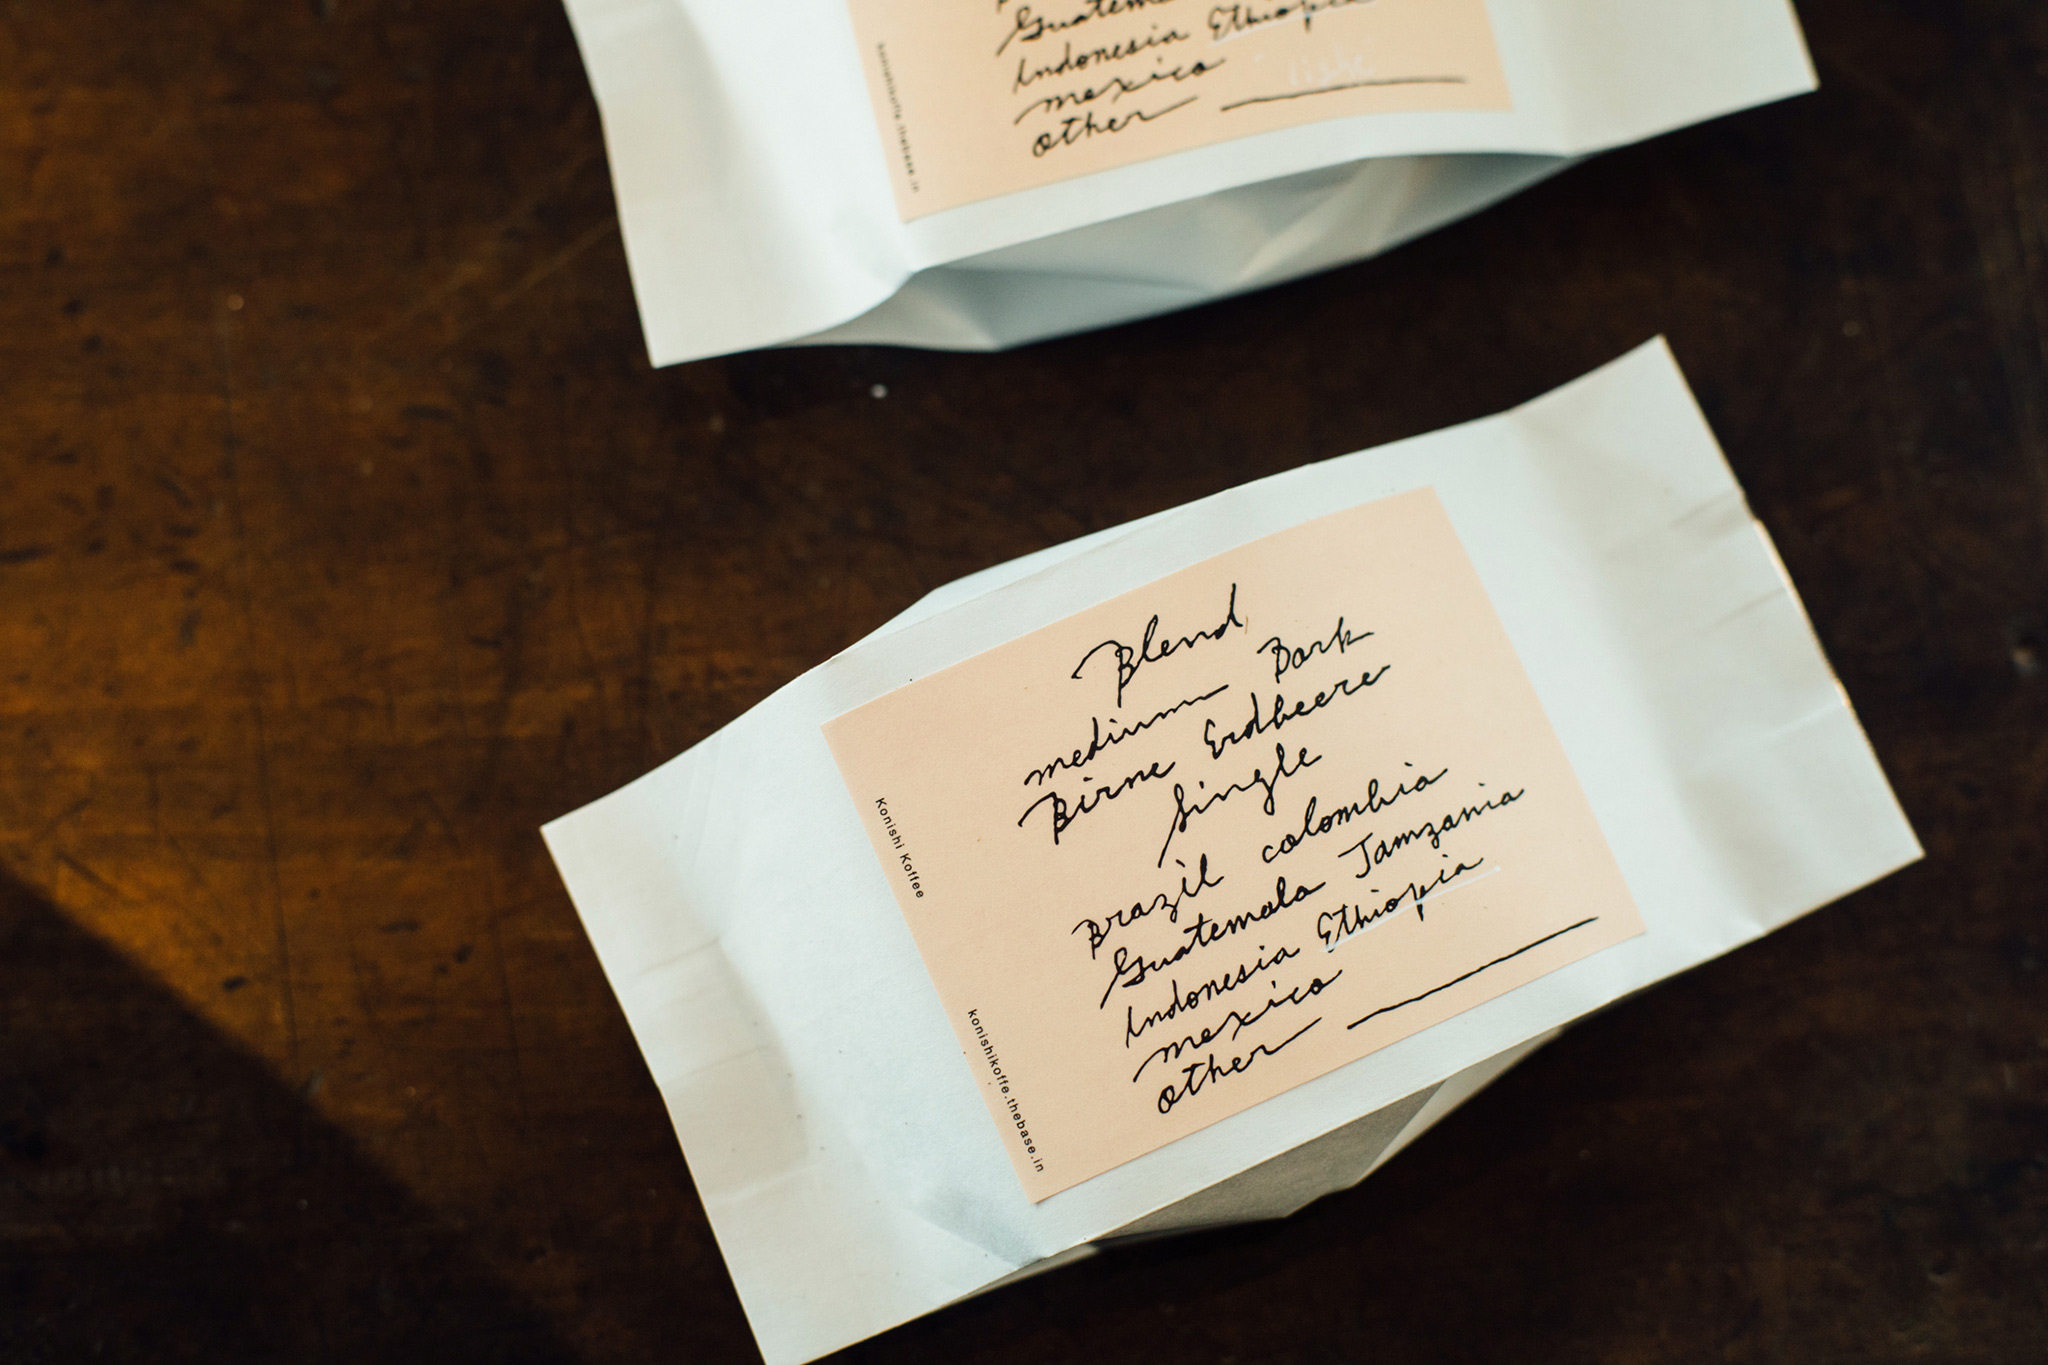 Guatema
Indonesia Ethiopia
mexico
other
konishikoffe.thebase.in
Blend
medium Dark
Birne Erdbeere
Single
Brazil colombia
Guatemala Tamzania
Indonesia Ethiopia
mexico
other
Konishi Koffee
konishikoffe.thebase.in